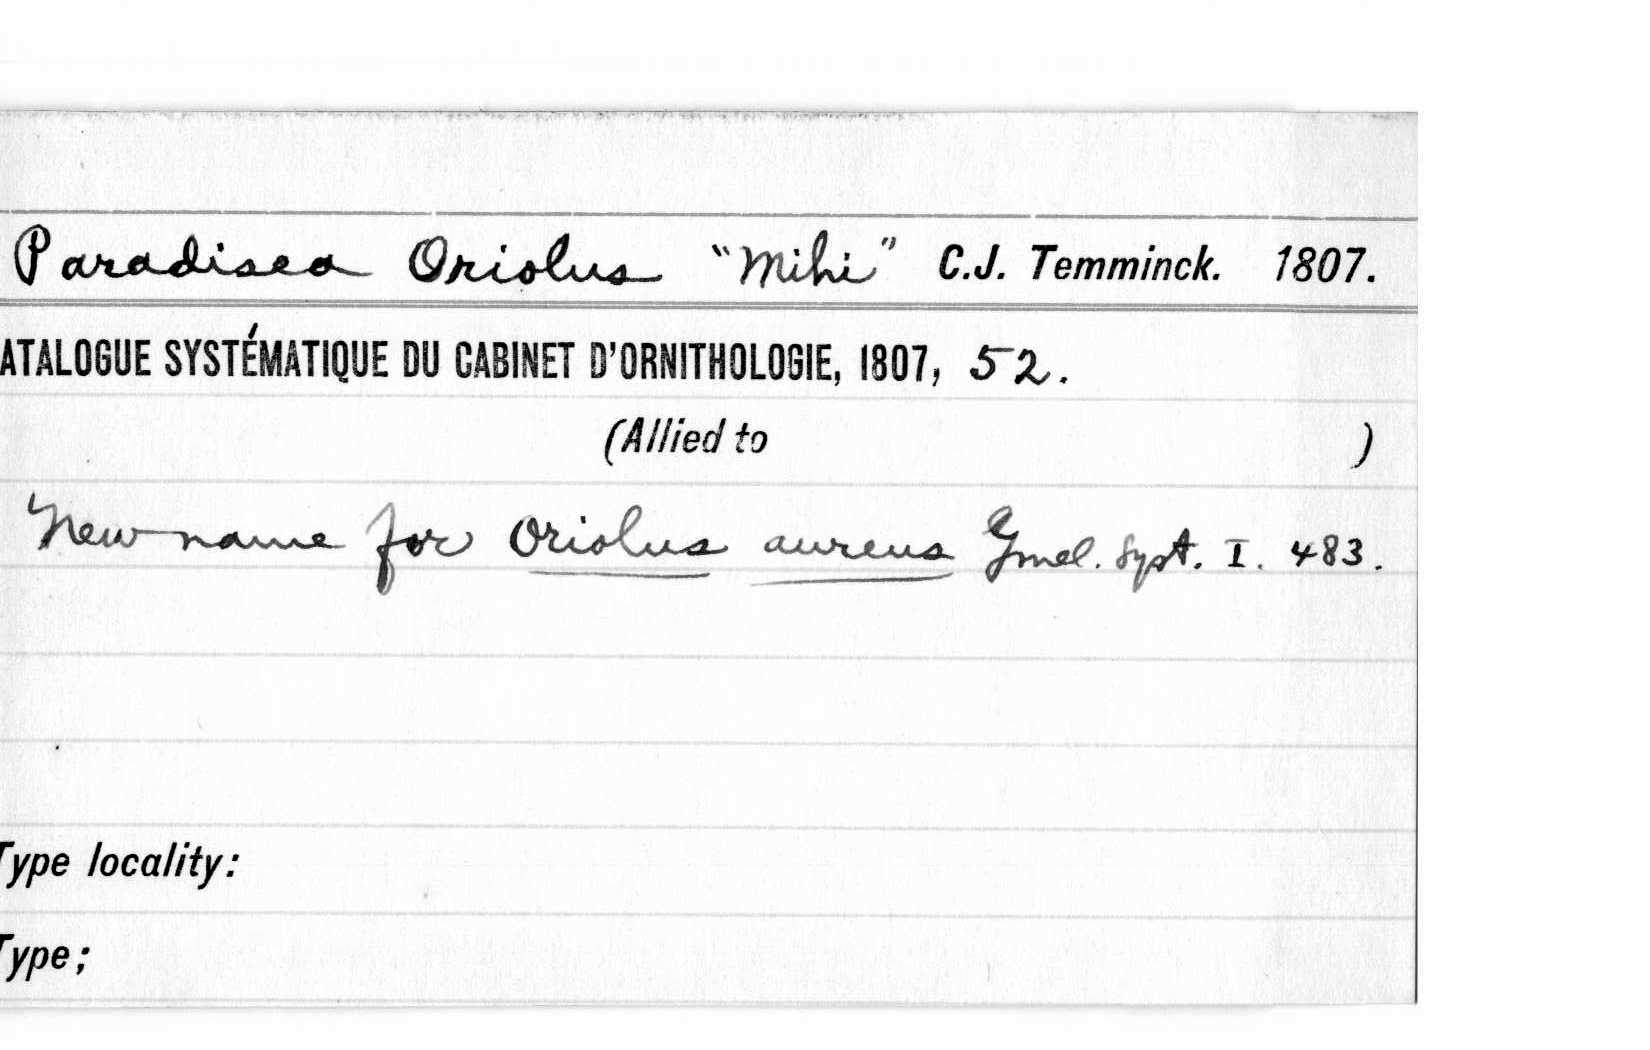 Paradisea Oriolus "Mihi" C.J. Temminck. 1807.
ATALOGUE SYSTÉMATIQUE DU CABINET D'ORNITHOLOGIE, 1807, 52.
(Allied to )
New name for Oriolus aureus Gmel. Syst. I. 483.
Type locality:
Type;